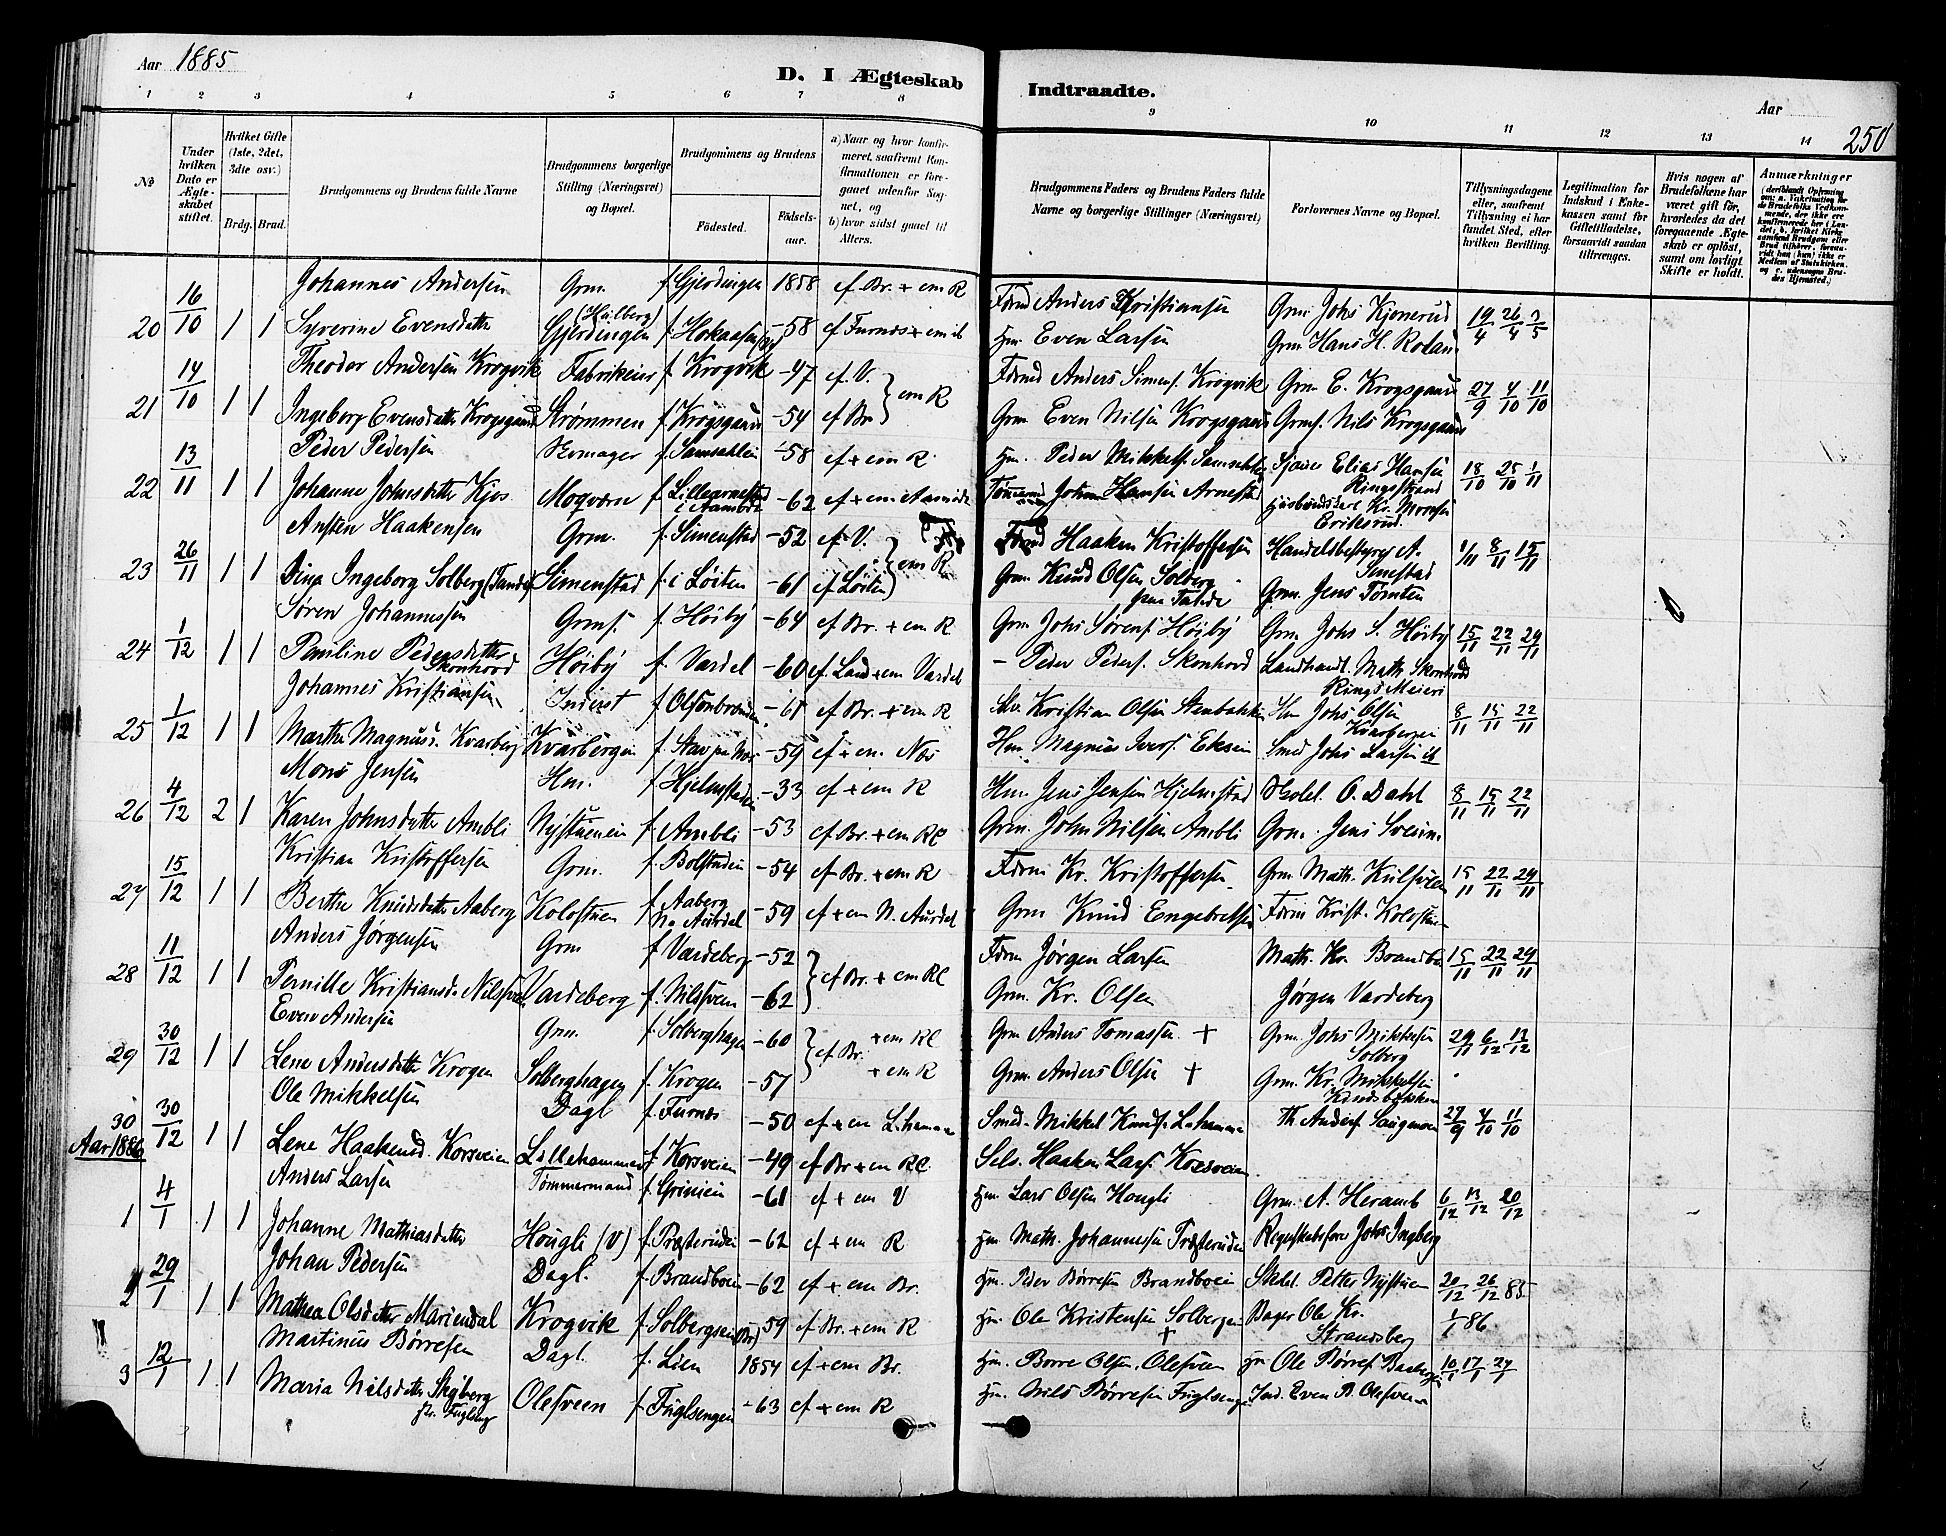 Aar 1885
D. I Ægteskab
Indtraadte.
Aar
250
1 2 3 4 5 6 7 8 9 10 11 12 13 14
No
Under hvilken Dato er Ægteskabet stiftet.
Hvilket Gifte (1ste, 2det, 3die osv.)
Brdg. Brud.
Brudgommens og Brudens fulde Navne
Brudgommens borgerlige Stilling (Næringsvei) og Bopæl.
Brudgommens og Brudens
Födested.
Födsels-aar.
a) Naar og hvor konfirmeret, saafremt Konfirmationen er foregaaet udenfor Sognet, og
b) hvor sidst gaaet til Alters.
Brudgommens Faders og Brudens Faders fulde Navne og borgerlige Stillinger (Næringsvei)
Forlovernes Navne og Bopæl.
Tillysningsdagene eller, saafremt Tillysning ei har fundet Sted, efter hvilken Bevilling.
Legitimation for Indskud i Enkekassen samt for Giftetilladelse, forsaavidt saadan tiltrænges.
Hvis nogen af Brudefolkene har været gift för, hvorledes da det foregaaende Ægteskab er oplöst, samt om lovligt Skifte er holdt.
Anmærkninger
20 16/10 1 1 Johannes Andersen Grm. f. Gjerdingen 1858 cf. Br. + em R Fdrmd Anders Kristiansen Grm. Johs Kjonerud 19/4 26/4 3/5
Syverine Evensdatter Gjerdingen (Hulberg) -58 cf Furnes + em ib Hm. Even Larsen Grm Hans H.
21 14/10 1 1 Theodor Andersen Krogvik Fabrikeier f. Krogvik -47 cf. V. Fdrmd Anders Simens. Krogvik Grm E. Krogsgaard 27/9 4/10 11/10
Ingeborg Evensdatter Krogsgaard Strømmen f. Krogsgaard -54 cf Br em R Grm Even Nilsen Krogsgaard Grms. Nils Krogsgaard
22 13/11 1 1 Peder Pedersen Skomager f. Samsahlen -58 cf + em R. Hm. Peder Mikkels. Elias Hansen Ringsstrand 18/10 25/10 1/11
Johanne Johnsdatter Kjos Moqvern f Lillearnestad i Aamodt -62 cf + em Aamodt Tømmermd Johan Hansen Arnestad Kr. Monsen Eriksrud.
23 26/11 1 1 Ansten Haakensen Grm. f. Simenstad -52 cf. V. Fdrmd Haaken Kristoffersen Handelsbestyrer A. Simestad 1/11 8/11 15/11
Dina Ingeborg Solberg Simenstad f. i Løiten -61 cf Løiten em R Grm Knud Olsen Solberg Grm. Jens Tømten
24 1/12 1 1 Søren Johannessen Grms. f. Höiby -64 cf Br. + em R Grm Johs Sørens. Høiby Grm. Johs S. Høiby 15/11 22/11 29/11
Pauline Pedersdatter Skonhovd Høiby f. Vardal -60 cf. Land + em Vardal - Peder Peders. Skonhovd Landhandl. Math Skonhovd
25 1/12 1 1 Johannes Kristiansen Inderst f -61 cf Br. + em R Kristian Olsen Stenbakken Hm Johs Olsen Kvarbergei Rings Meieri 8/11 15/11 22/11
Marthe Magnusd. Kvarberg Kvarbergei f. -59 cf + em. Nes Hm. Magnus Ivers. Eksein Smed Johs Larsen ib
26 4/12 2 1 Mons Jensen Hm. f Hjelmstadei -33 cf + em R Hm. Jens Jensen Hjelmstad O. Dahl 8/11 15/11 22/11
Karen Johnsdatter Ambli Nystuenein f. Ambli -53 cf Br. + em R Grm. John Nilsen Ambli Grm. Jens
27 15/12 1 1 Kristian Kristoffersen Grm. f. Bolstuein -54 cf Br. + em R Fdrm Kr. Kristoffersen Grm Math. 15/11 22/11 29/11
Berthe Knudsdatter Aaberg Kolostuen f Aaberg N. Aurdal -59 cf + em N. Aurdal Grm Knud Engebretsen Fdrm Krist. Kolostuen
28 11/12 1 1 Anders Jørgensen Grm f Vardeberg -52 Fdrm Jørgen Larsen Math. Kr. 15/11 22/11 29/11
Pernille Kristiansd. Nilsveen Vardeberg f. Nilsveen -62 cf Br. + em R Grm. Kr. Olsen Jørgen Vardeberg
29 30/12 1 1 Even Andersen Grm. f. Solberghagen -60 + em R Grm Anders Tomassen + Grm. Johs Mikkelsen Solberg 29/11 6/12 13/12
Lene Andersdatter Krogen Solberghagen f. Krogen -57 cf Br. + em R Grm. Anders Olsen + Grm. Kr. Mikkelsen
30 30/12 1 1 Ole Mikkelsen Dagl f. Furnes -50 cf + em L.hammer Smed. Mikkel Knuds. L.hammer Th Anders. 27/9 4/10 11/10
Lene Haakensd. Korsveien Lillehammer f. Korsveien -49 cf Br + em R Sels. Haaken Lars. Korsveien
Aar 1886
1 4/1 1 1 Anders Larsen Tømmermand f. Grinien -61 cf + em V Hm. Lars Olsen Hougli Grm. A. Heramb 6/12 13/12 20/12
Johanne Mathiasdatter Hougli (V) f. Præsterudei -62 cf + em R Hm. Math. Johannesen Præsterudei Regnskabsfører Johs Ingberg
2 29/1 1 1 Johan Pedersen Dagl. f. Brandboei -62 cf + em Br. Hm. Peder Børresen Brandboei Petter Nystuen 20/12 26/12 85
Mathea Olsdatter Mariendal Krogvik f. Solbergsei (Br) 59 cf Br. + em R Hm. Ole Kristensen Solbergei + Bager Ole Kr. Strandberg 1/1 86
3 12/1 1 1 Martinus Børresen Dagl. f. Lien 1854 cf + em Br. Hm. Borre Olsen Olesveen Hm Ole Børres. 10/1 17/1 24/1
Maria Nilsdatter Skyberg Olesveen f. Fuglsengen -63 cf + em R Hm. Nils Børresen Fuglsengen Ind. Even B. Olesveen